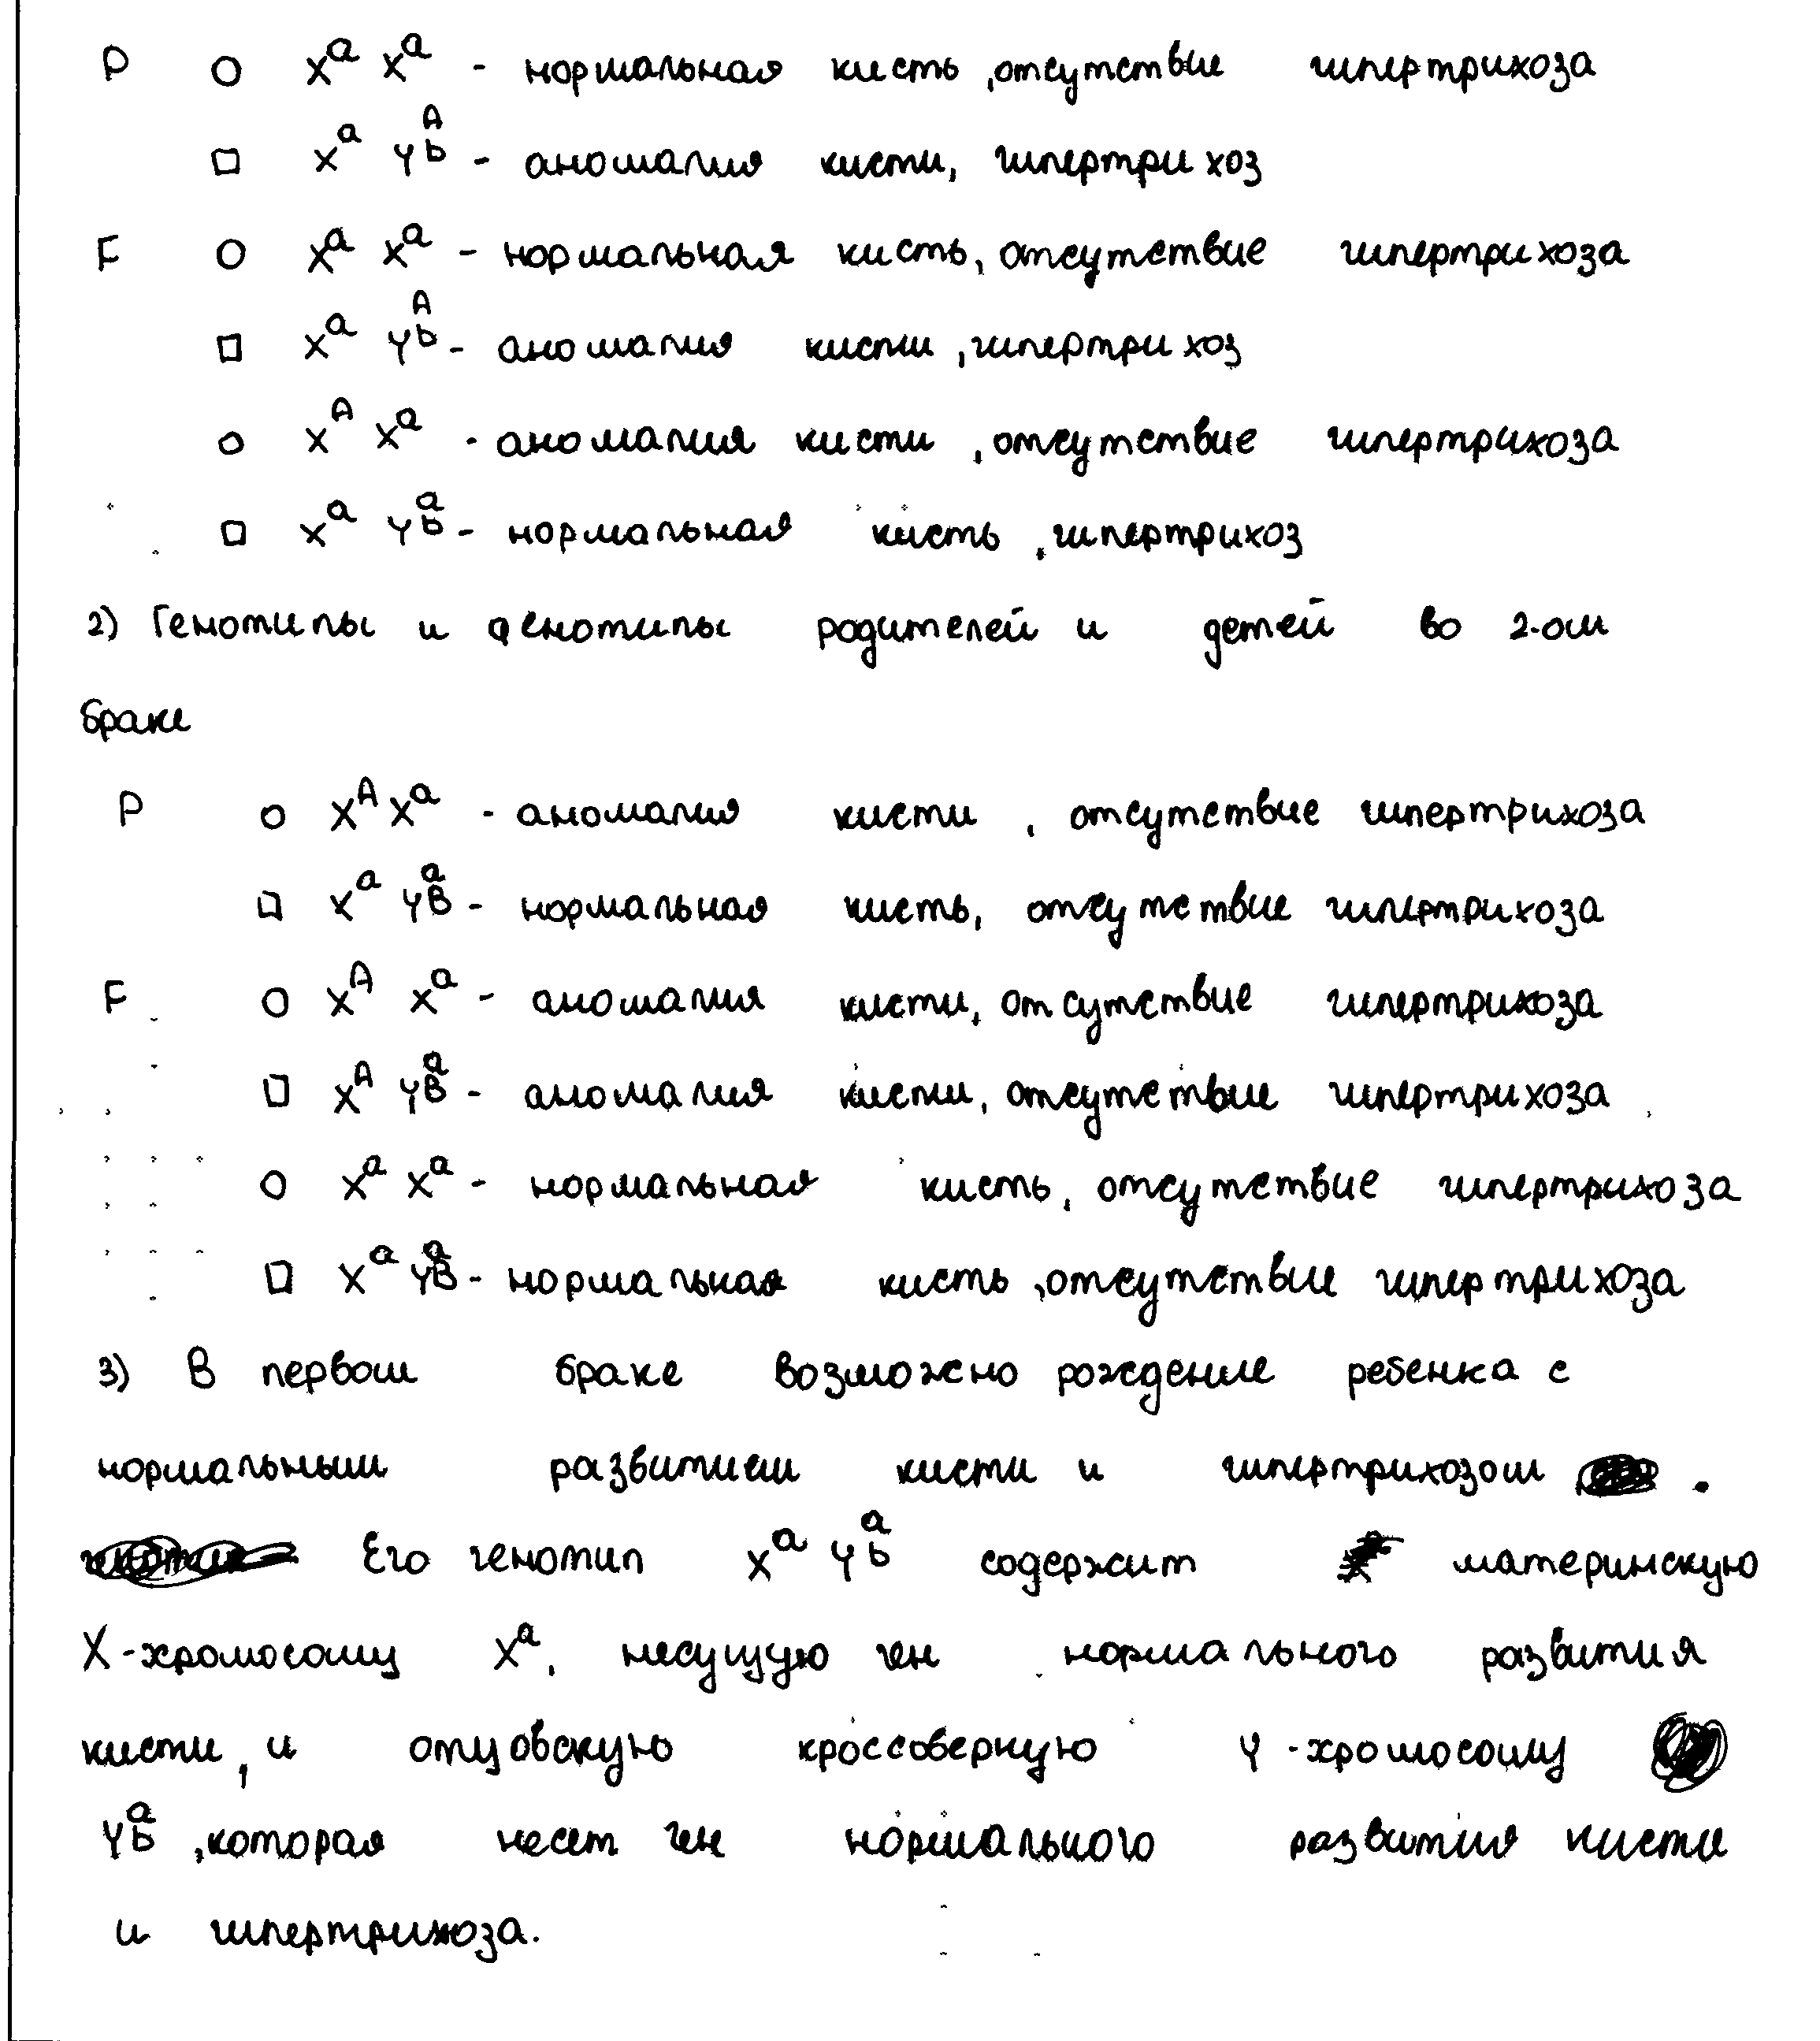 P ○ Xᵃ Xᵃ - нормальная кисть, отсутствие гипертрихоза
□ Xᵃ Yᵇᴬ - аномалия кисти, гипертрихоз
F ○ Xᵃ Xᵃ - нормальная кисть, отсутствие гипертрихоза
□ Xᵃ Yᵇᴬ - аномалия кисти, гипертрихоз
○ Xᴬ Xᵃ - аномалия кисти, отсутствие гипертрихоза
□ Xᵃ Yᵇᵃ - нормальная кисть, гипертрихоз
2) Генотипы и фенотипы родителей и детей во 2-ом
браке
P ○ Xᴬ Xᵃ - аномалия кисти, отсутствие гипертрихоза
□ Xᵃ Yᴮᵃ - нормальная кисть, отсутствие гипертрихоза
F ○ Xᴬ Xᵃ - аномалия кисти, отсутствие гипертрихоза
□ Xᴬ Yᴮᵃ - аномалия кисти, отсутствие гипертрихоза
○ Xᵃ Xᵃ - нормальная кисть, отсутствие гипертрихоза
□ Xᵃ Yᴮᵃ - нормальная кисть, отсутствие гипертрихоза
3) В первом браке возможно рождение ребенка с
нормальным развитием кисти и гипертрихозом .
Его генотип Xᵃ Yᵇᵃ содержит материнскую
X-хромосому Xᵃ, несущую ген нормального развития
кисти, и отцовскую кроссоверную Y-хромосому
Yᵇᵃ, которая несет ген нормального развития кисти
и гипертрихоза.